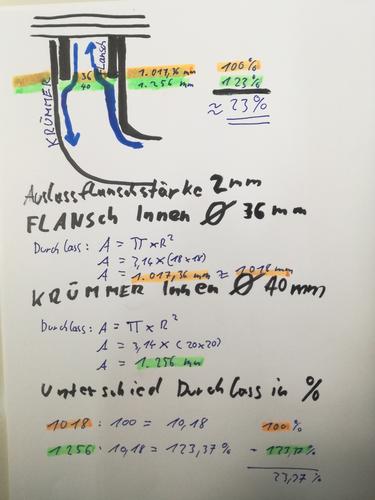 Flansch
KRÜMMER
36 1.017,36 mm 100%
40 1.256 mm 123%
≈ 23%
Auslassflanschstärke 2mm
FLANSCH Innen Ø 36 mm
Durchlass: A = π x R²
A = 3,14 x (18 x 18)
A = 1.017,36 mm ≈ 1018 mm
KRÜMMER Innen Ø 40 mm
Durchlass: A = π x R²
A = 3,14 x (20x20)
A = 1.256 mm
Unterschied Durchlass in %
1018 : 100 = 10,18 100%
1.256 : 10,18 = 123,37% - 123,37%
23,37 %